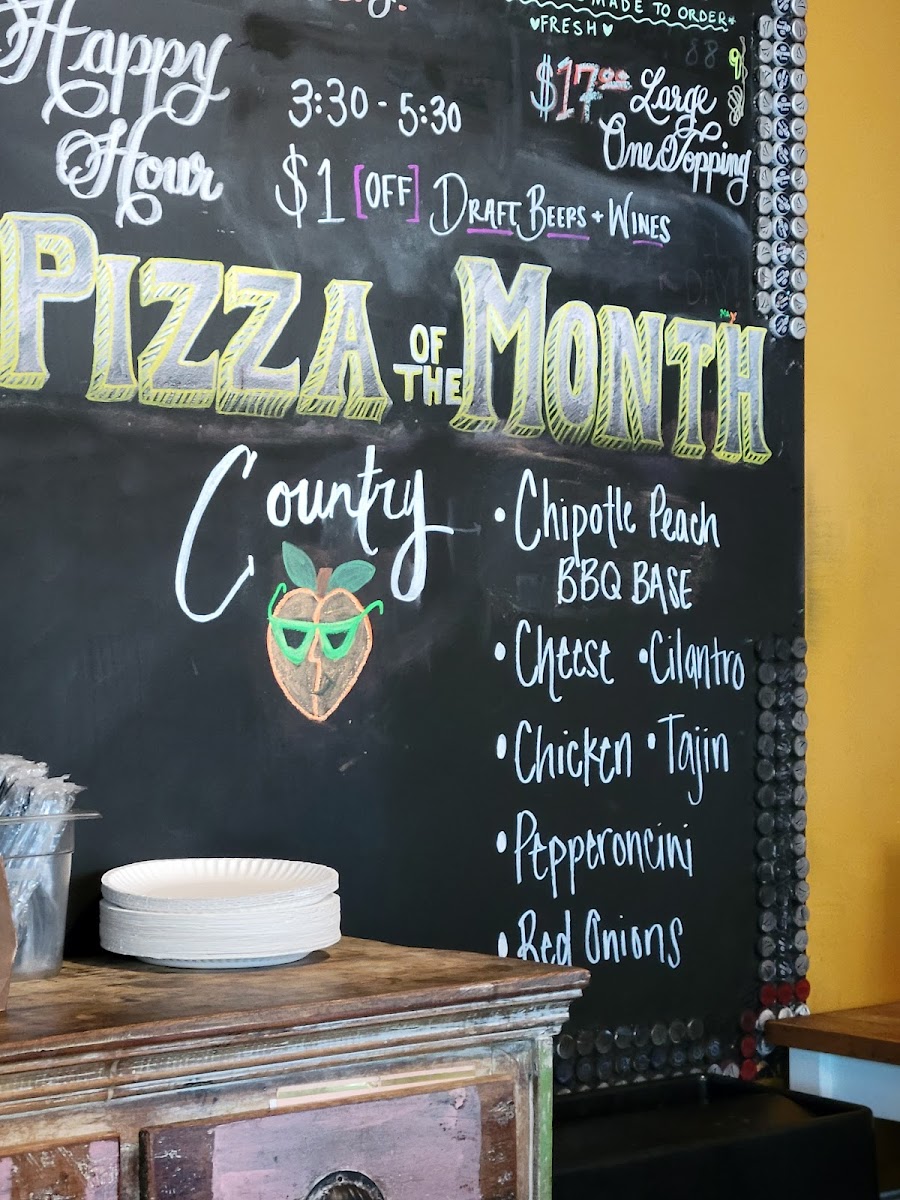 MADE TO ORDER*
♥FRESH♥
Happy
Hour
3:30 - 5:30
$1 [OFF] DRAFT BEERS + WINES
$17.00 Large
One Topping
PIZZA OF THE MONTH
Country
• Chipotle Peach
BBQ BASE
• Cheese • Cilantro
• Chicken • Tajin
• Pepperoncini
• Red Onions